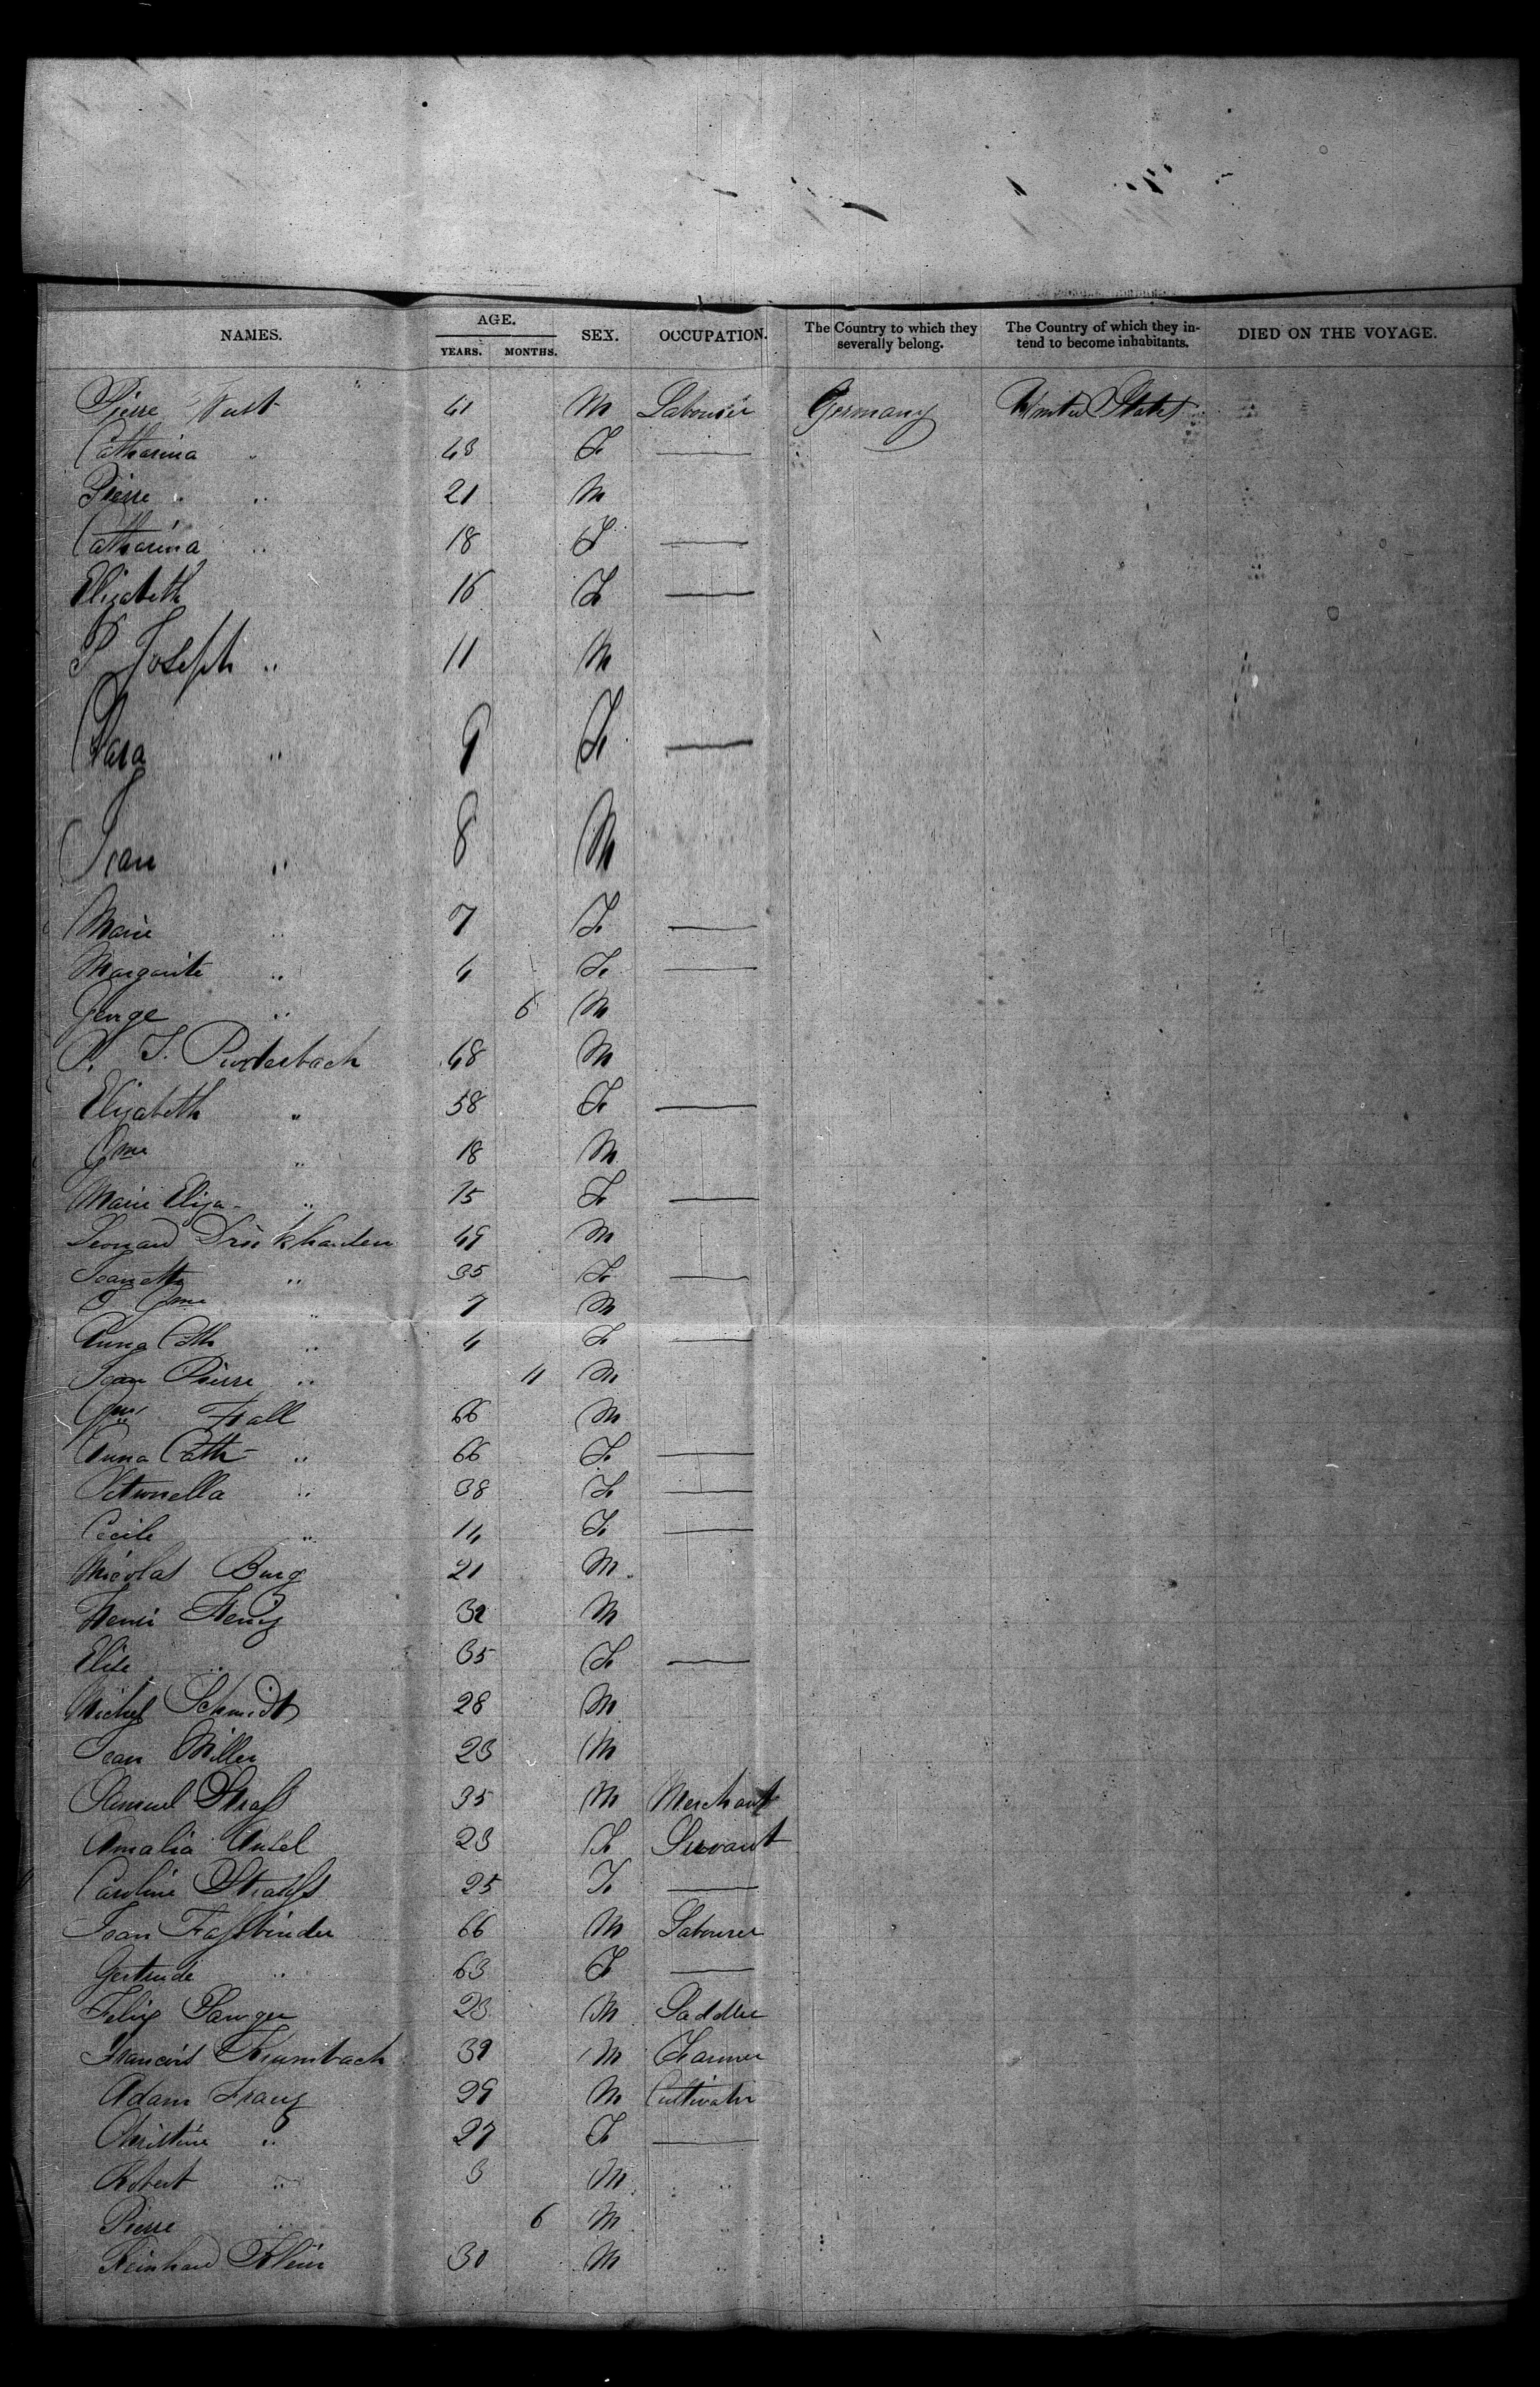 NAMES. AGE. SEX. OCCUPATION. The Country to which they severally belong. The Country of which they intend to become inhabitants. DIED ON THE VOYAGE.
YEARS. MONTHS.
Pierre 41 M Labourer Germany United States
Catharina " 43 F —
Pierre " 21 M
Catharina " 18 F —
Elizabeth 16 F —
P Joseph " 11 M
Clara " 9 F —
Jean " 8 M
Marie " 7 F —
Margarite " 4 F —
George " 6 M
P. J. 48 M
Elizabeth " 58 F —
Gme " 18 M
Marie Eliza " 15 F —
Leonard 49 M
Jeanette " 35 F —
J Gme " 7 M
Anna Cath " 4 F —
Jean Pierre " 11 M
Gme Fall 66 M
Anna Cath " 66 F —
Petronella " 38 F —
Cecile " 14 F —
Nicolas Burg 21 M
Henri 32 M
Elise " 35 F —
Michel Schmidt 28 M
Jean Miller 23 M
Samuel Straß 35 M Merchant
Amalia 23 F Servant
Caroline 25 F —
Jean Faßbinder 66 M Labourer
Gertrude " 63 F —
Felix 23 M Saddler
Francois Krumbach 39 M Farmer
Adam Franz 29 M Cultivator
Christine " 27 F —
Robert " 3 M "
Pierre " 6 M "
Reinhard Klein 30 M "